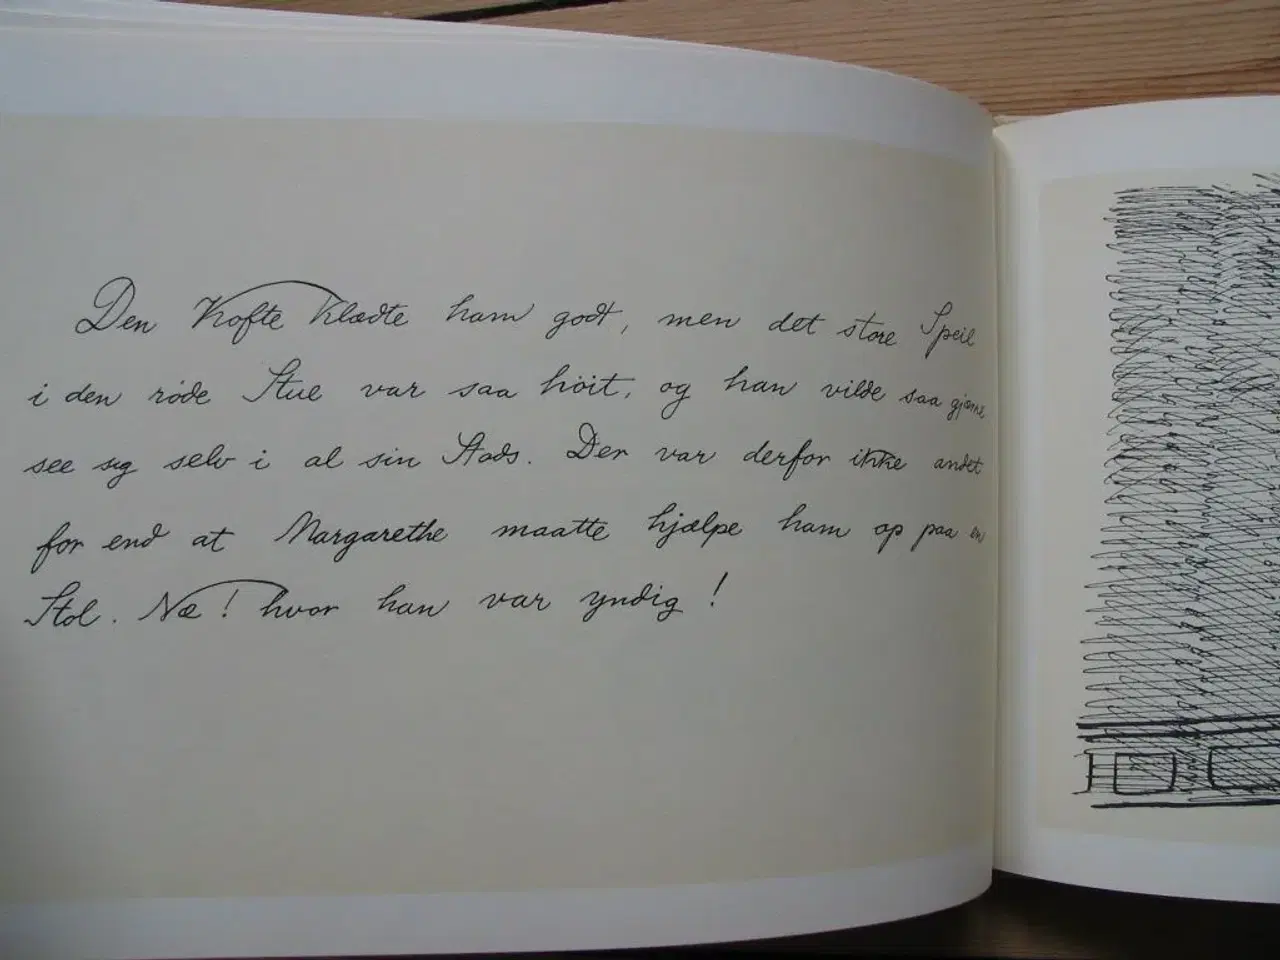 Den Kofte klædte ham godt, men det store Speil
i den röde Stue var saa höit, og han vilde saa gjerne
see sig selv i al sin Stads. Der var derfor ikke andet
for end at Margarethe maatte hjælpe ham op paa en
Stol. Næ! hvor han var yndig!